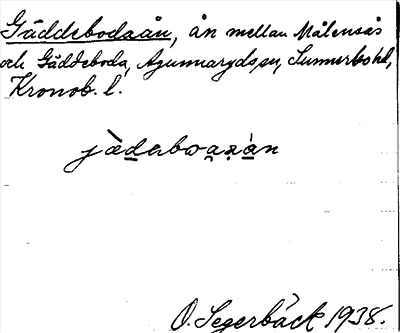 Gäddebodaån, ån mellan Målensås
och Gäddeboda, Agunnaryds sn, Sunnerbo hd,
Kronob. l.
O. Segerbäck 1938.